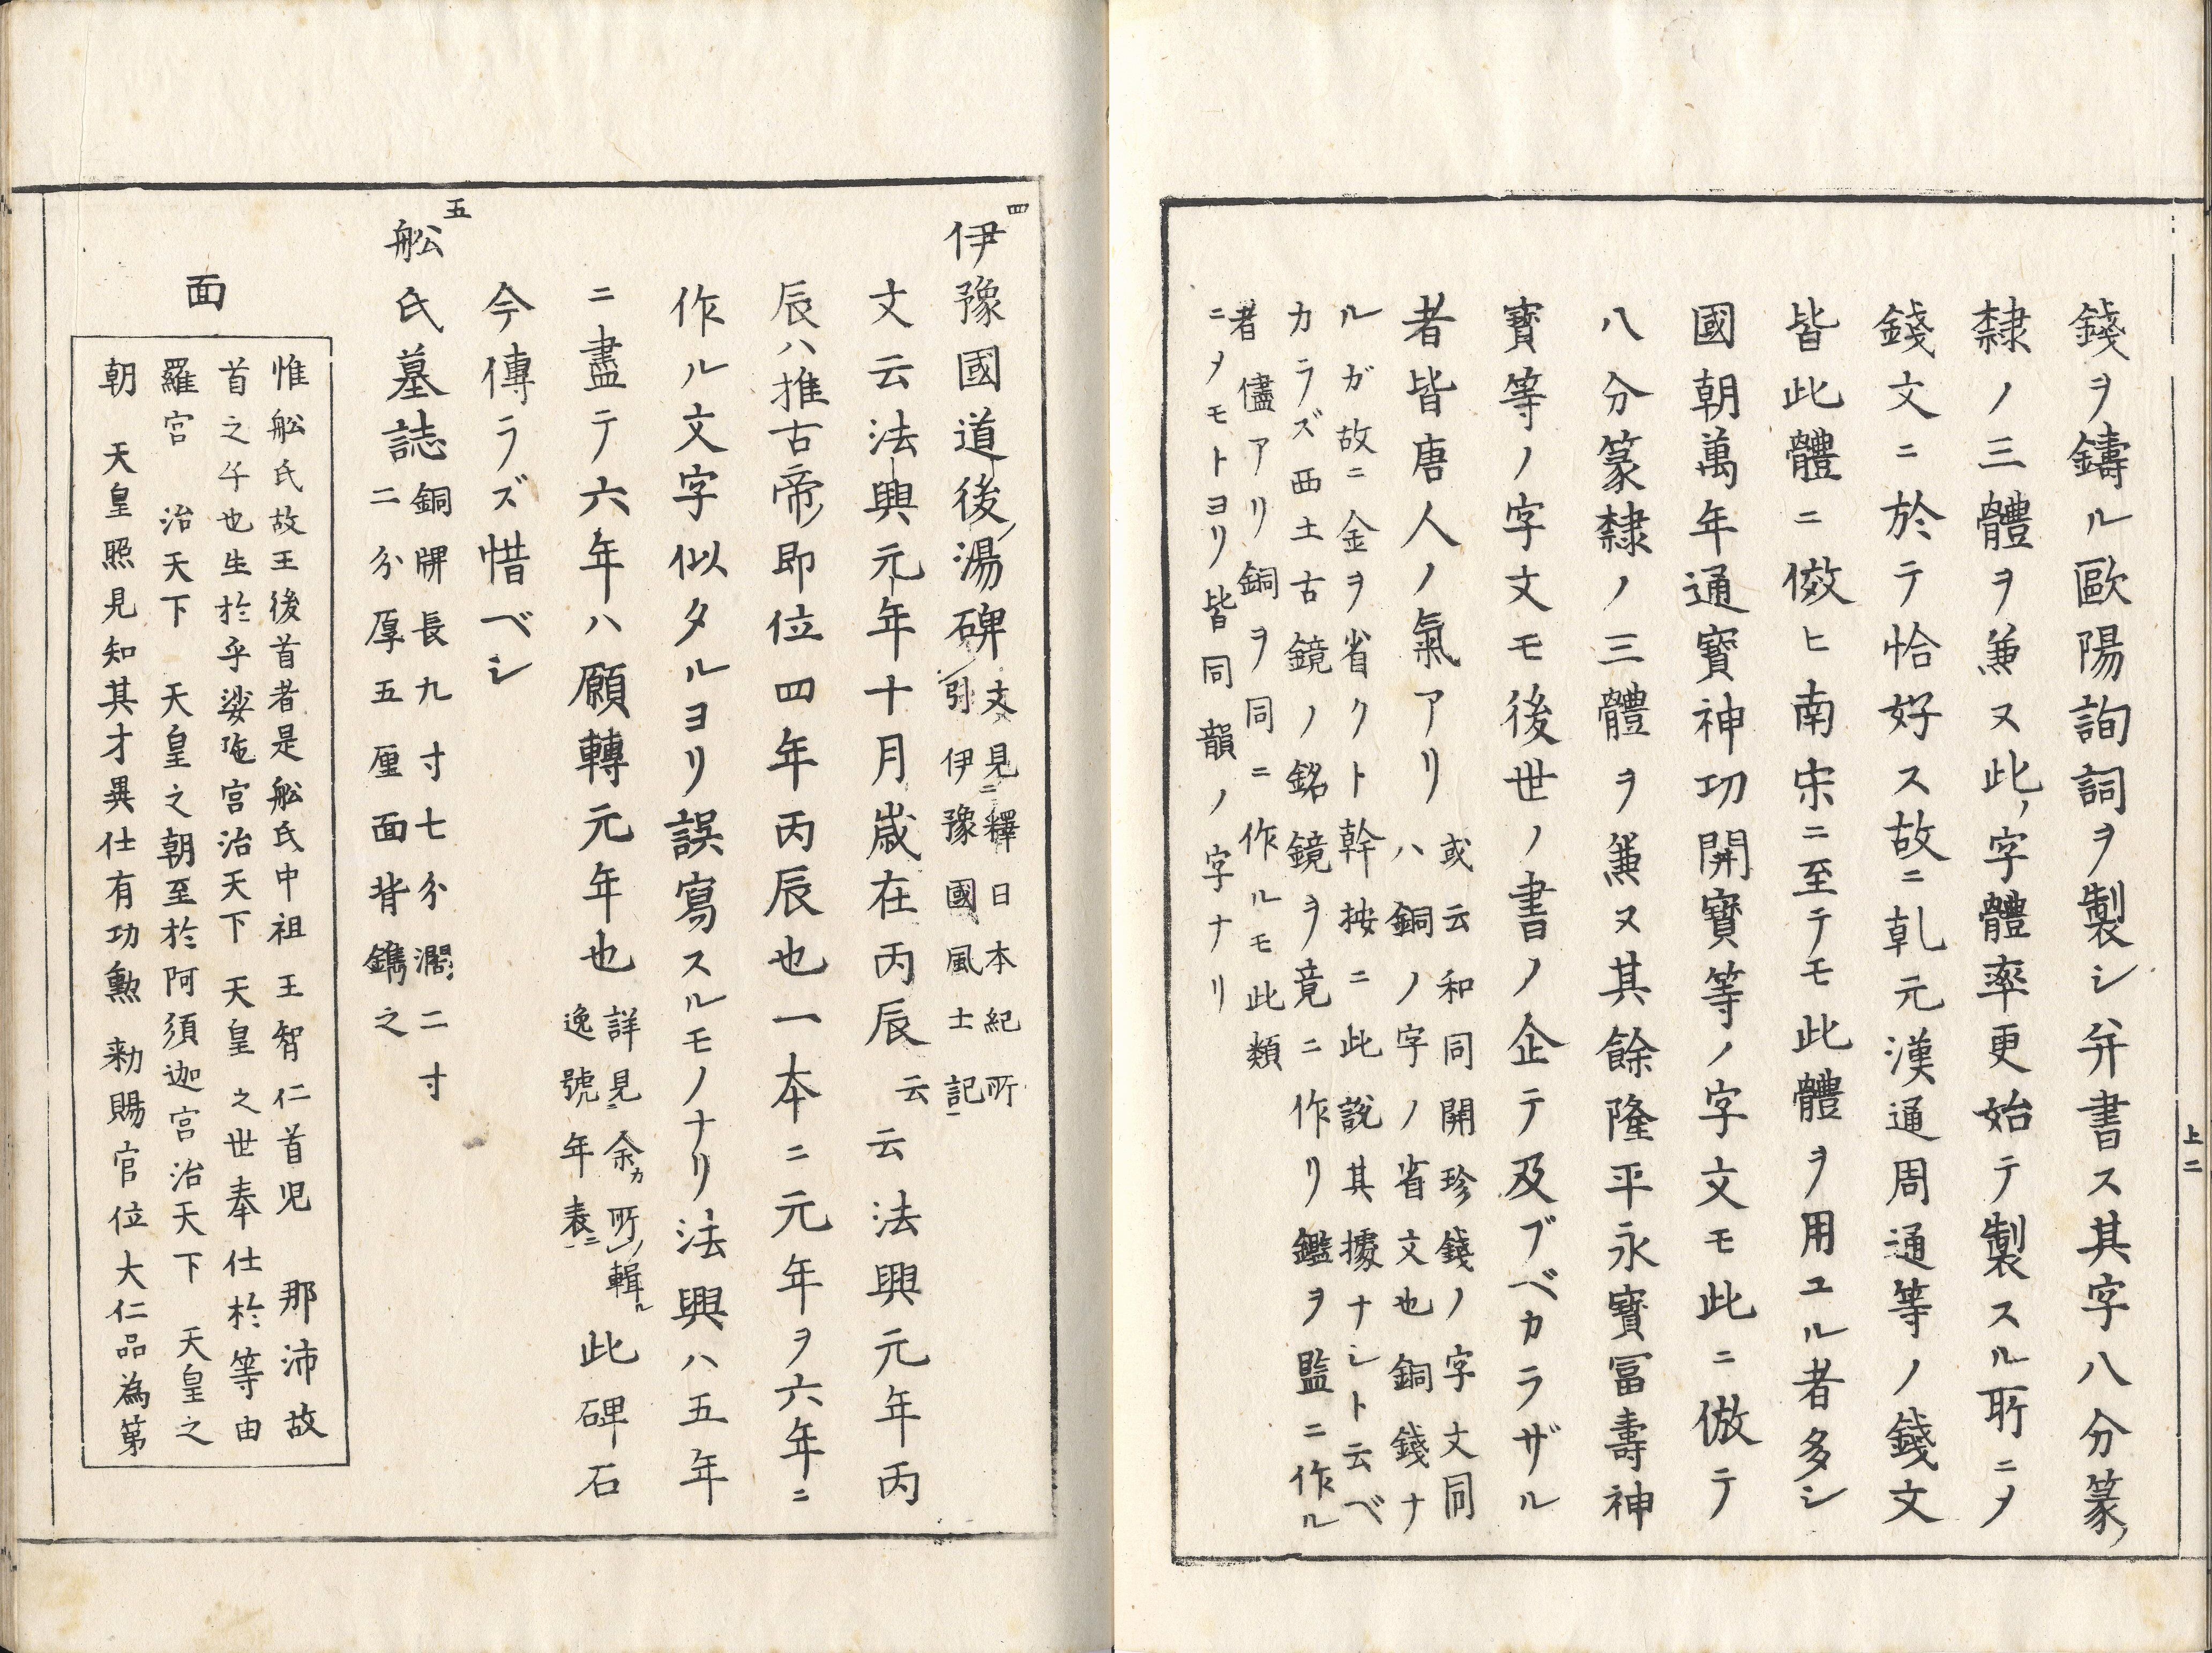 錢ヲ鑄ル歐陽詢詞ヲ製シ弁書ス其字八分篆
隸ノ三體ヲ兼ヌ此ノ字體率更始テ製スル所ニメ
錢文ニ於テ恰好ス故ニ乹元漢通周通等ノ錢文
皆此體ニ倣ヒ南宋ニ至テモ此體ヲ用ユル者多シ
國朝萬年通寳神功開寳等ノ字文モ此ニ倣テ
八分篆隸ノ三體ヲ兼ヌ其餘隆平永寳冨壽神
寳等ノ字文モ後世ノ書ノ企テ及ブベカラザル
者皆唐人ノ氣アリ
或云和同開珍錢ノ字文同
ハ銅ノ字ノ省文也銅錢ナ
ルガ故ニ金ヲ省クト幹按ニ此説其據ナシト云ベ
カラズ西土古鏡ノ銘鏡ヲ竟ニ作リ鑑ヲ監ニ作ル
者儘アリ銅ヲ同ニ作ルモ此類
ニメモトヨリ皆同韻ノ字ナリ
上二
四
伊豫國道後ノ湯碑
文見ニ釋日本紀所
引伊豫國風土記一
文云法興元年十月歳在丙辰云云法興元年丙
辰ハ推古帝ノ即位四年丙辰也一本ニ元年ヲ六年ニ
作ル文字似タルヨリ誤寫スルモノナリ法興ハ五年
ニ盡テ六年ハ願轉元年也
詳見余カ所ノ輯ル
逸號年表ニ
此碑石
今傳ラズ惜ベシ
五
舩氏墓誌
銅牌長九寸七分濶二寸
二分厚五厘面背鐫之
面
惟舩氏故王後首者是舩氏中祖 王智仁首児 那沛故
首之乎也生於乎娑陁宮治天下 天皇之世奉仕於等由
羅宮 治天下 天皇之朝至於阿須迦宮治天下 天皇之
朝 天皇照見知其才異仕有功勲 勅賜官位大仁品為第